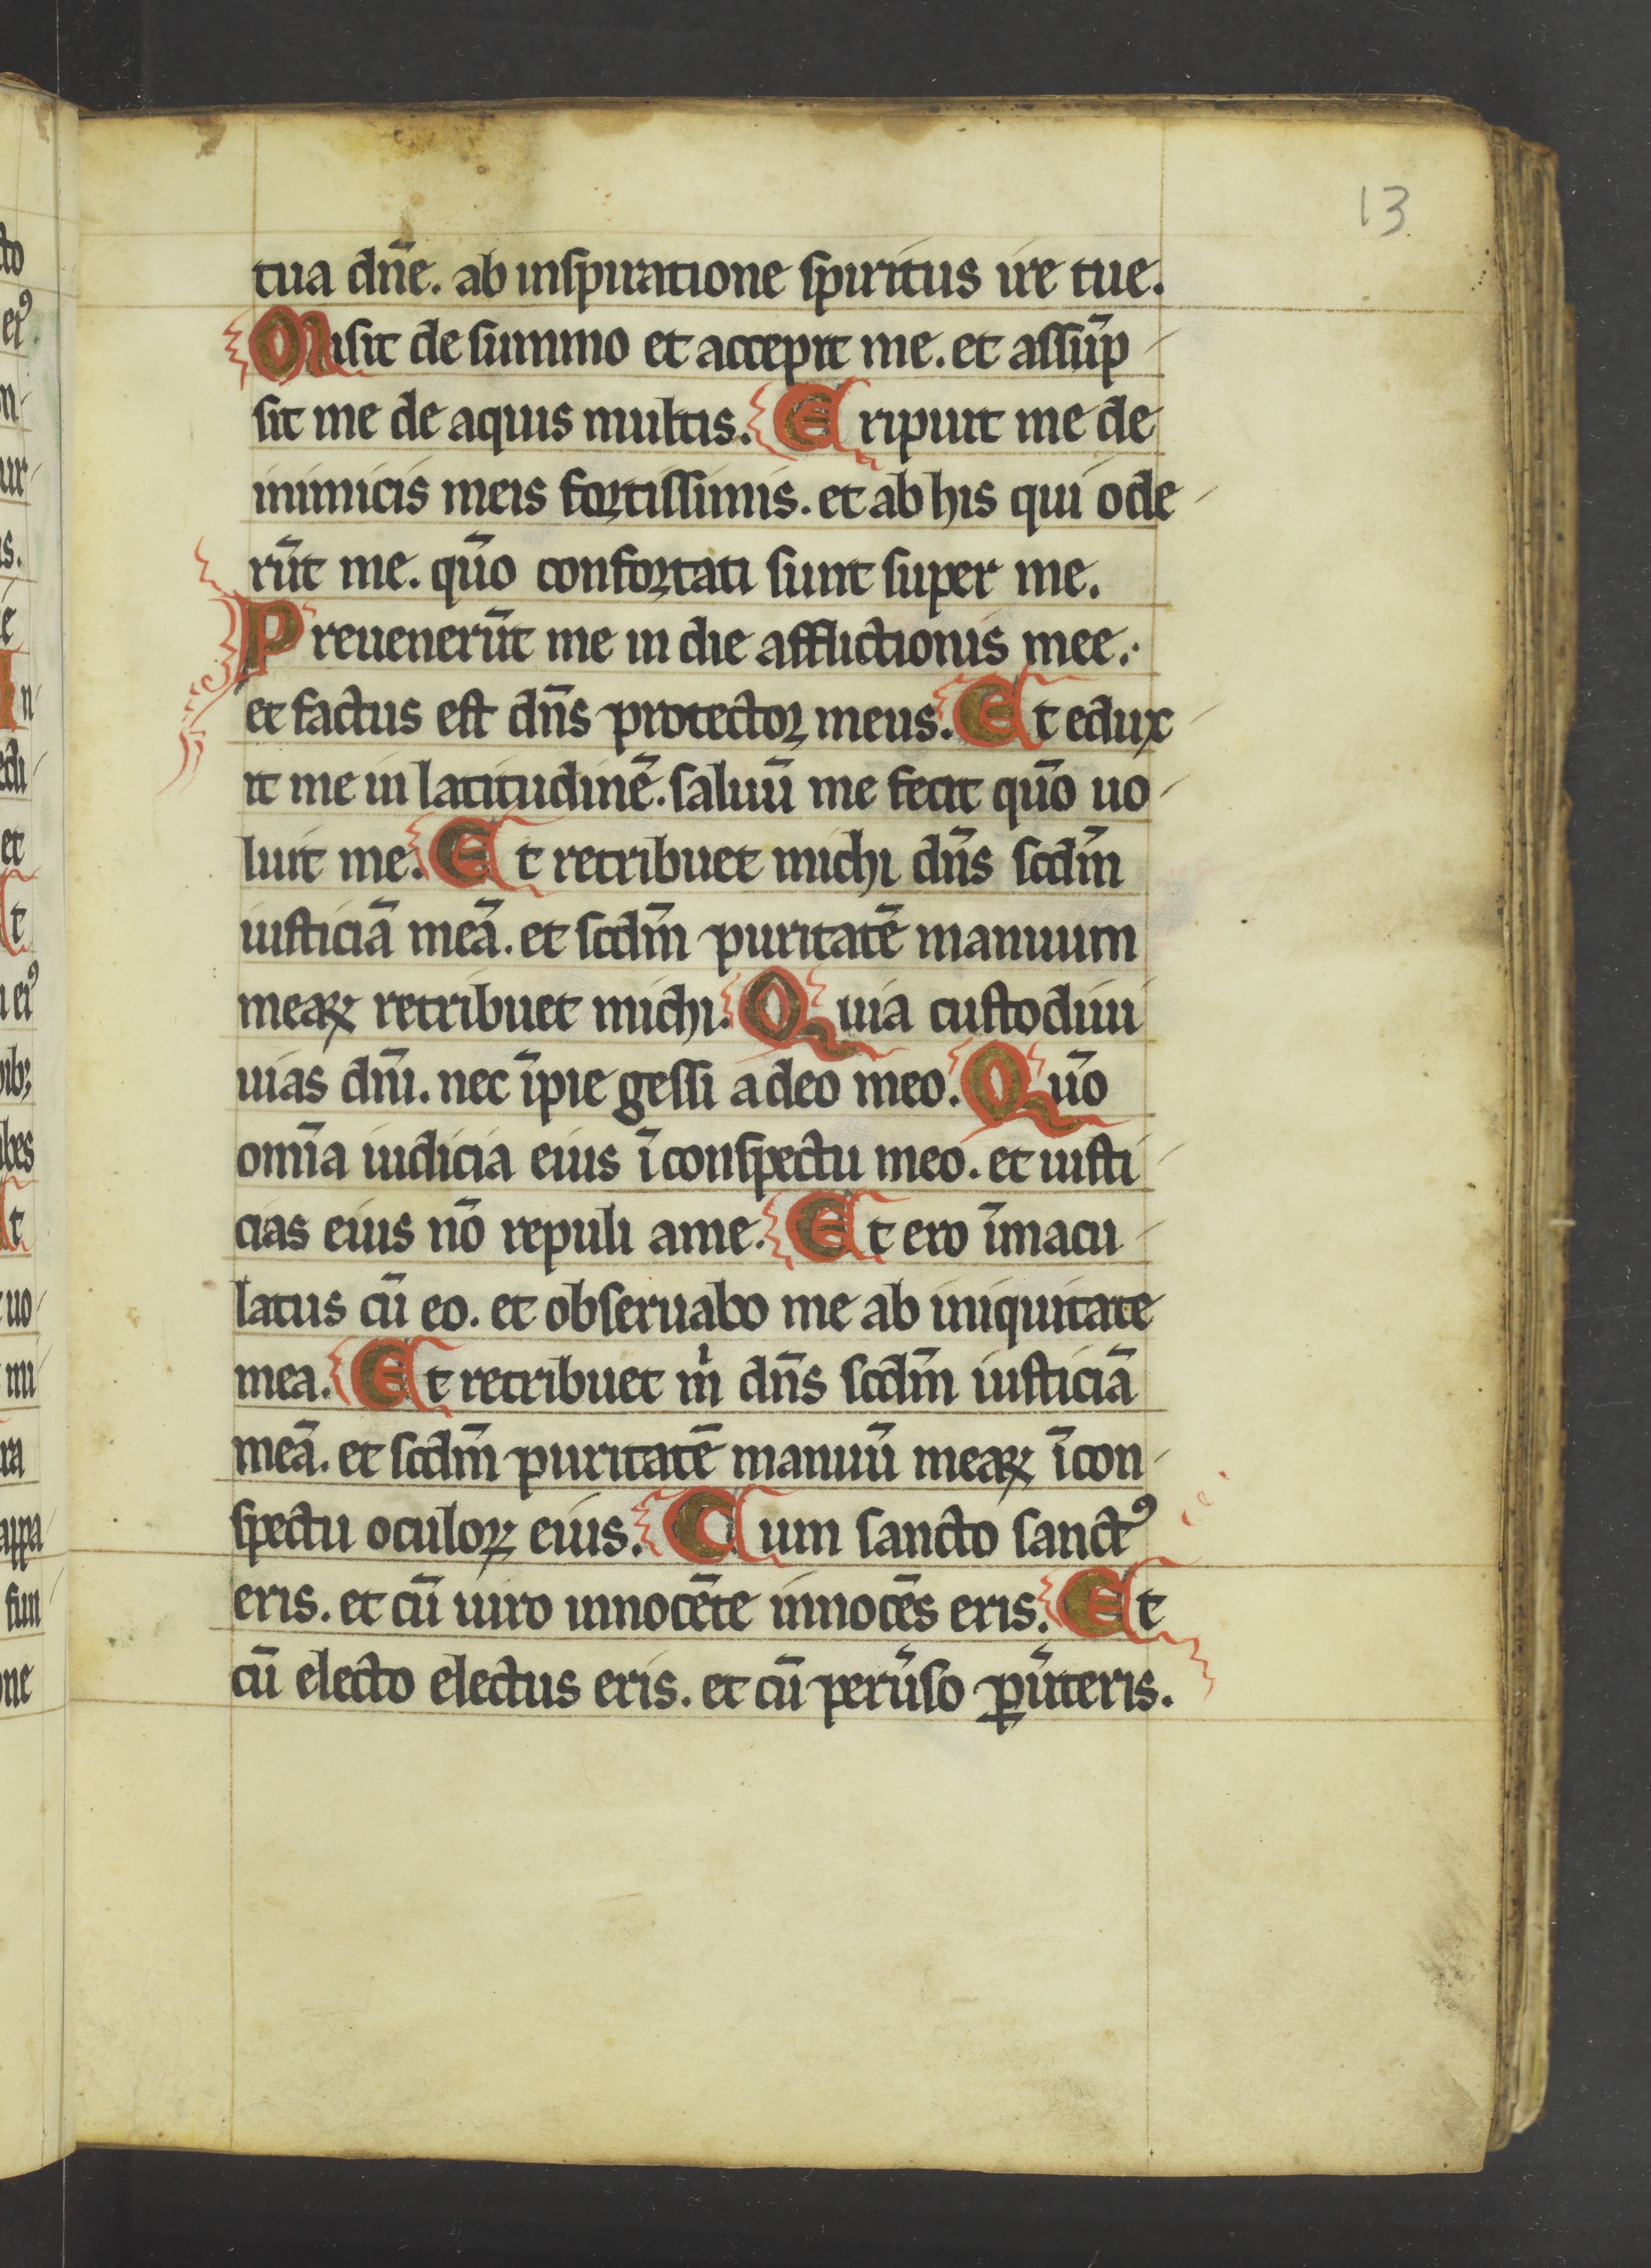 13
tua dn̄e. ab inspiratione spiritus ire tue.
Misit de summo et accepit me. et assūp
sit me de aquis multis. Eripuit me de
inimicis meis fortissimis. et ab his qui ode
rūt me. qūo confortati sunt super me.
Preuenerūt me in die afflictionis mee.
et factus est dn̄s protector meus. Et edux
it me in latitudinē. saluū me fecit qūo uo
luit me. Et retribuet michi dn̄s scdm̄
iusticiā meā. et scdm̄ puritatē manuum
meaꝝ retribuet michi. Quia custodiui
uias dn̄i. nec īpie gessi a deo meo. Qūo
om̄ia iudicia eius ī conspectu meo. et iusti
cias eius nō repuli a me. Et ero īmacu
latus cū eo. et obseruabo me ab iniquitate
mea. Et retribuet m̍ dn̄s scdm̄ iusticiā
meā. et scdm̄ puritatē manuū meaꝝ ī con
spectu oculoꝝ eius. Cum sancto sanctꝰ
eris. et cū uiro innocēte innocēs eris. Et
cū electo electus eris. et cū peru̾so ꝑu̾teris.